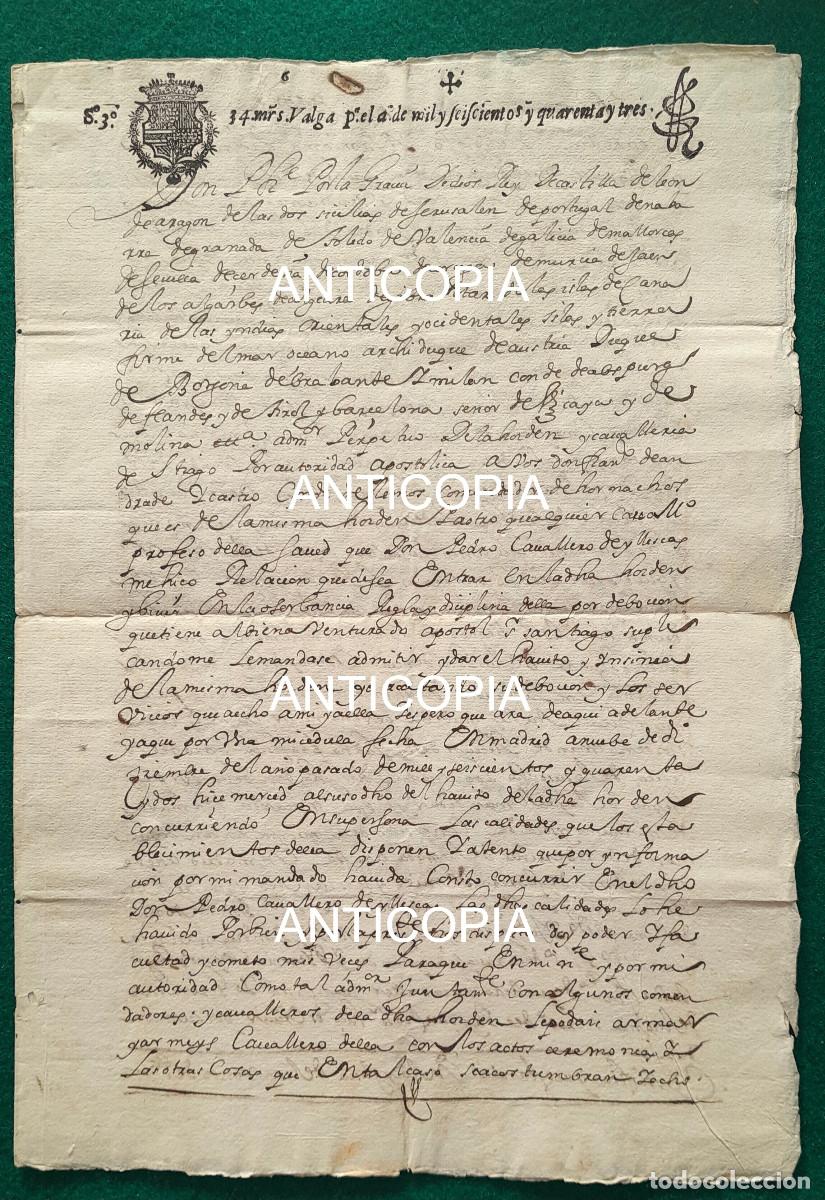 6
S.º 3.º 34. mrs. Valga pª. el aº. de mil y seiscientos y quarenta y tres.
Don Phe Por la Gracia De dios Rey De castilla de leon
de aragon de las dos sicilias de Jerusalen de portugal de nava
rra de granada de toledo de Valencia de galicia de mallorcas
de sevilla de cerdeña de cordoba de murcia de Jaen
de los algarbes de algecira de las islas de Cana
ria de las yndias orientales y ocidentales islas y tierra
firme del mar oceano archiduque de austria Duque
de Borgoña de brabante y milan conde de abspurg
de flandes y de tirol y barcelona señor de Vizcaya y de
molina etta admor Perpetuo De la horden y cavalleria
de Stiago Por autoridad apostolica a vos don franco de an
drade y castro Conde de lemos Comendador de hornachos
que es de la misma horden y a otro qualquier cavallo
profeso della Saved que Don Pedro Cavallero de yllescas
me hiço Relacion que desea Entrar En la dha horden
y bivir En la oserbancia Regla y diciplina della por debocion
que tiene al bienaventurado apostol sr santiago supli
candome le mandase admitir y dar el havito y ynsinia
de la misma horden y yo acatando su debocion y los ser
vicios que a echo a mi y a ella y espero que ara de aqui adelante
y a que por Una mi cedula fecha En madrid a nuebe de di
ziembre del año pasado de mill y seiscientos y quarenta
y dos hice merced al susodho del havito de la dha horden
concurriendo En su persona Las calidades que los esta
blecimientos della disponen Y atento que por ynforma
cion por mi mandado havida Consto concurrir En el dho
Don Pedro Cavallero de yllescas Las dhas calidades Lo he
havido Por bien y por la presente os doy poder Y fa
cultad y cometo mis Veces Para que En mi ne y por mi
autoridad Como tal admor Juntamte con algunos comen
dadores y cavalleros de la dha horden Le podais armar
y armeys Cavallero della con los actos ceremonias Y
Las otras Cosas que En tal caso se acostumbran Y echo
ANTICOPIA
ANTICOPIA
ANTICOPIA
ANTICOPIA
todocoleccion